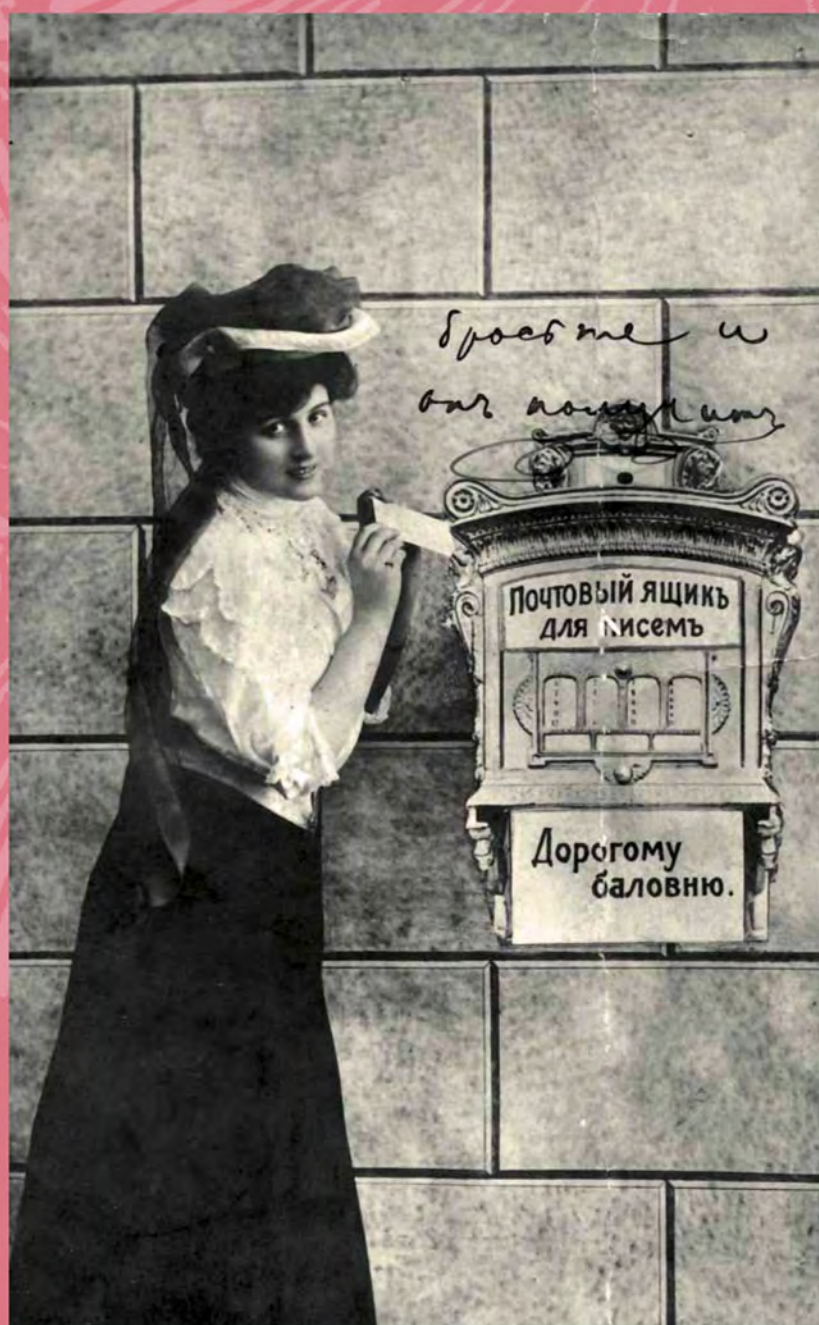 бросьте и
онъ получитъ
Почтовый ящикъ
для писемъ
Дорогому
баловню.